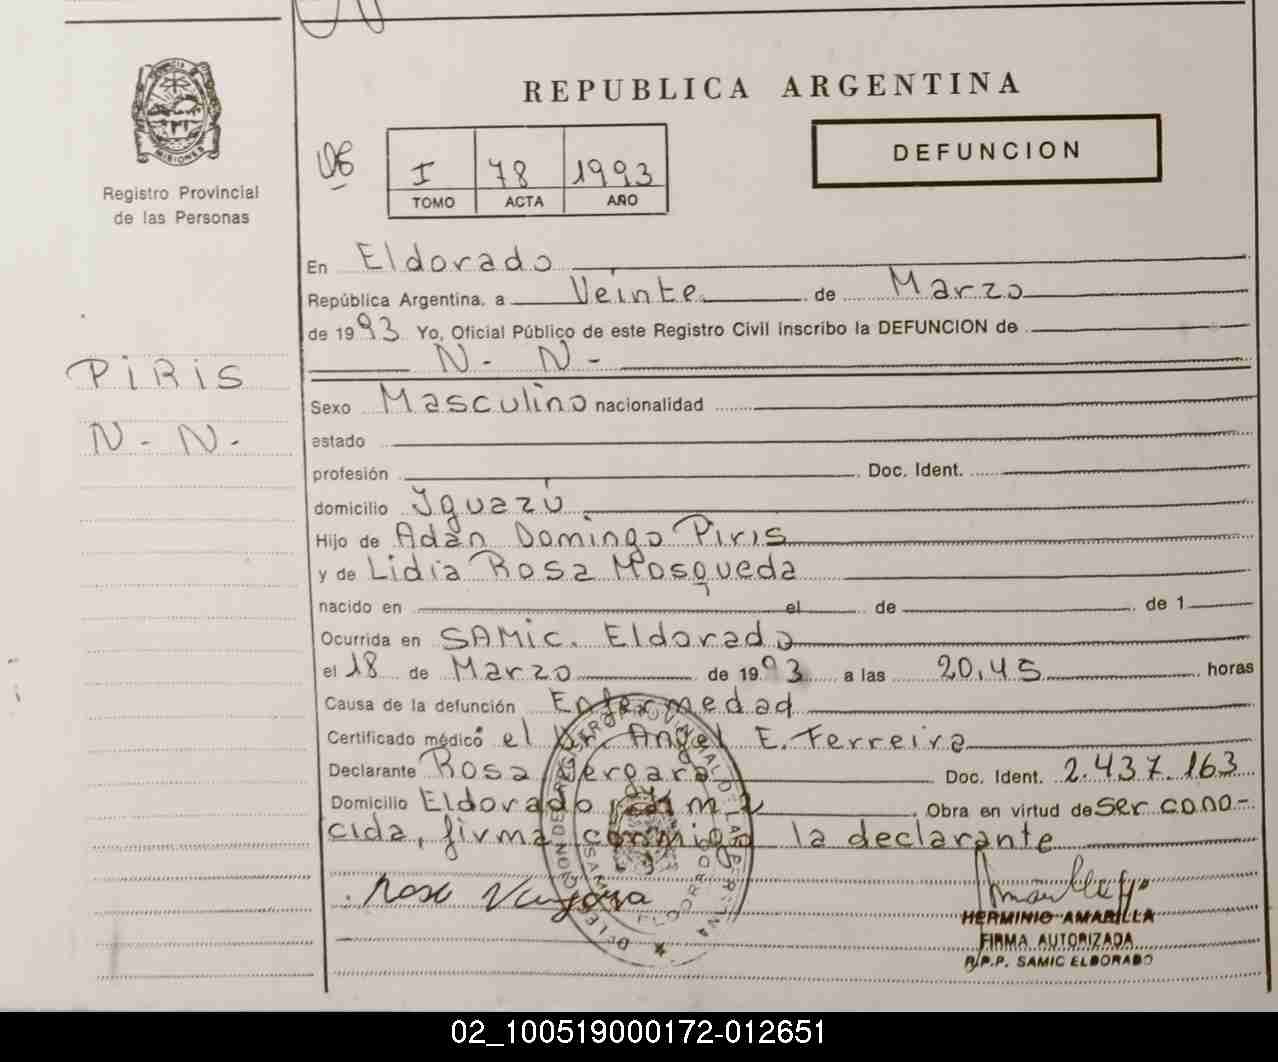 PROVINCIA DE
MISIONES
Registro Provincial
de las Personas
PIRIS
N - N -
REPUBLICA ARGENTINA
I 78 1993
TOMO ACTA AÑO
DEFUNCION
En Eldorado
República Argentina, a Veinte de Marzo
de 1993 Yo, Oficial Público de este Registro Civil inscribo la DEFUNCION de
N - N -
Sexo Masculino nacionalidad
estado
profesión Doc. Ident.
domicilio Iguazú
Hijo de Adán Domingo Piris
y de Lidia Rosa Mosqueda
nacido en el de de 1
Ocurrida en SAMIC. Eldorado
el 18 de Marzo de 1993 a las 20,45 horas
Causa de la defunción Enfermedad
Certificado médico el Dr. Angel E. Ferreira
Declarante Rosa Vergara Doc. Ident. 2.437.163
Domicilio Eldorado km 2 Obra en virtud de ser cono-
cida, firma conmigo la declarante
Rosa Vergara
HERMINIO AMARILLA
FIRMA AUTORIZADA
R.P.P. SAMIC ELDORADO
02_100519000172-012651